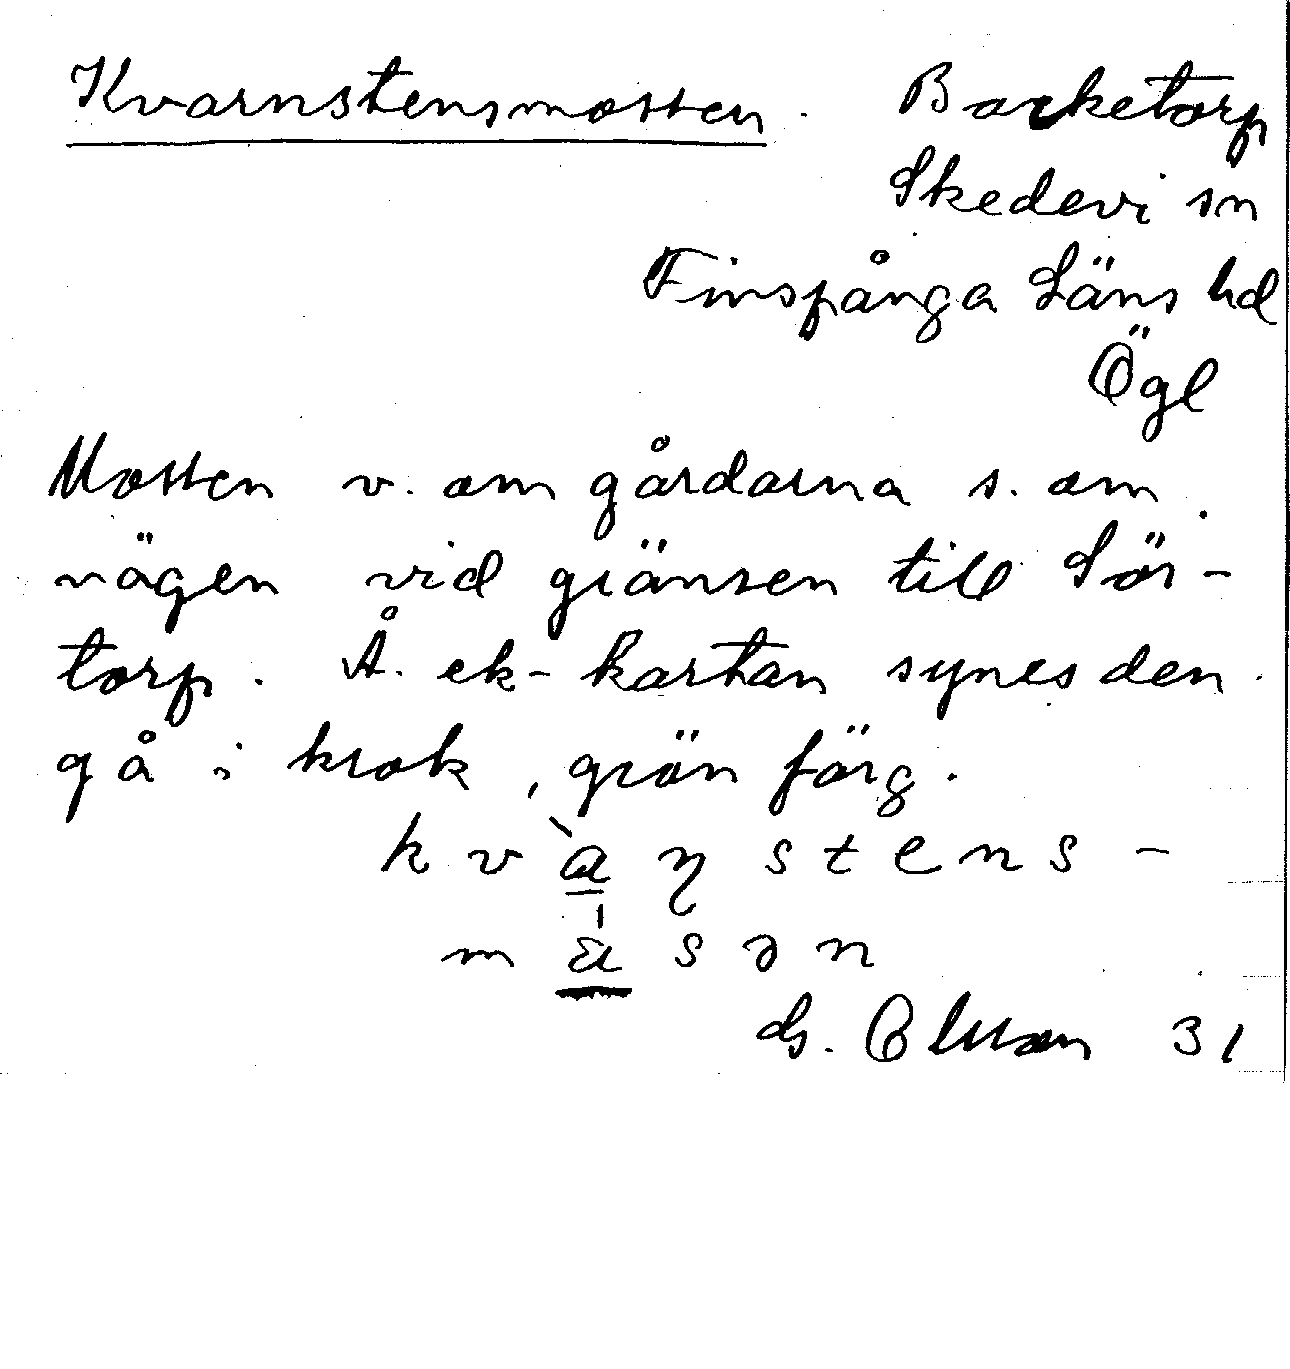 Kvarnstensmossen. Backetorp
Skedevi sn
Finspånga Läns hd
Ögl
Mossen v. om gårdarna s. om
vägen vid gränsen till Sör-
torp. Å. ek-kartan synes den
gå i krok, grön färg.
kvàŋstens-
sən
G. Olsson 31